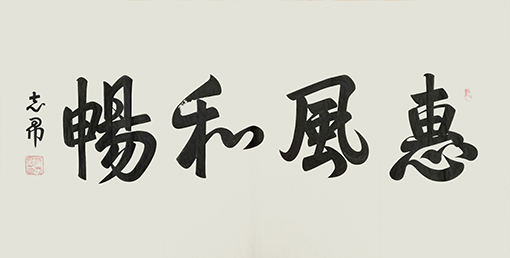 惠風和暢
志帚